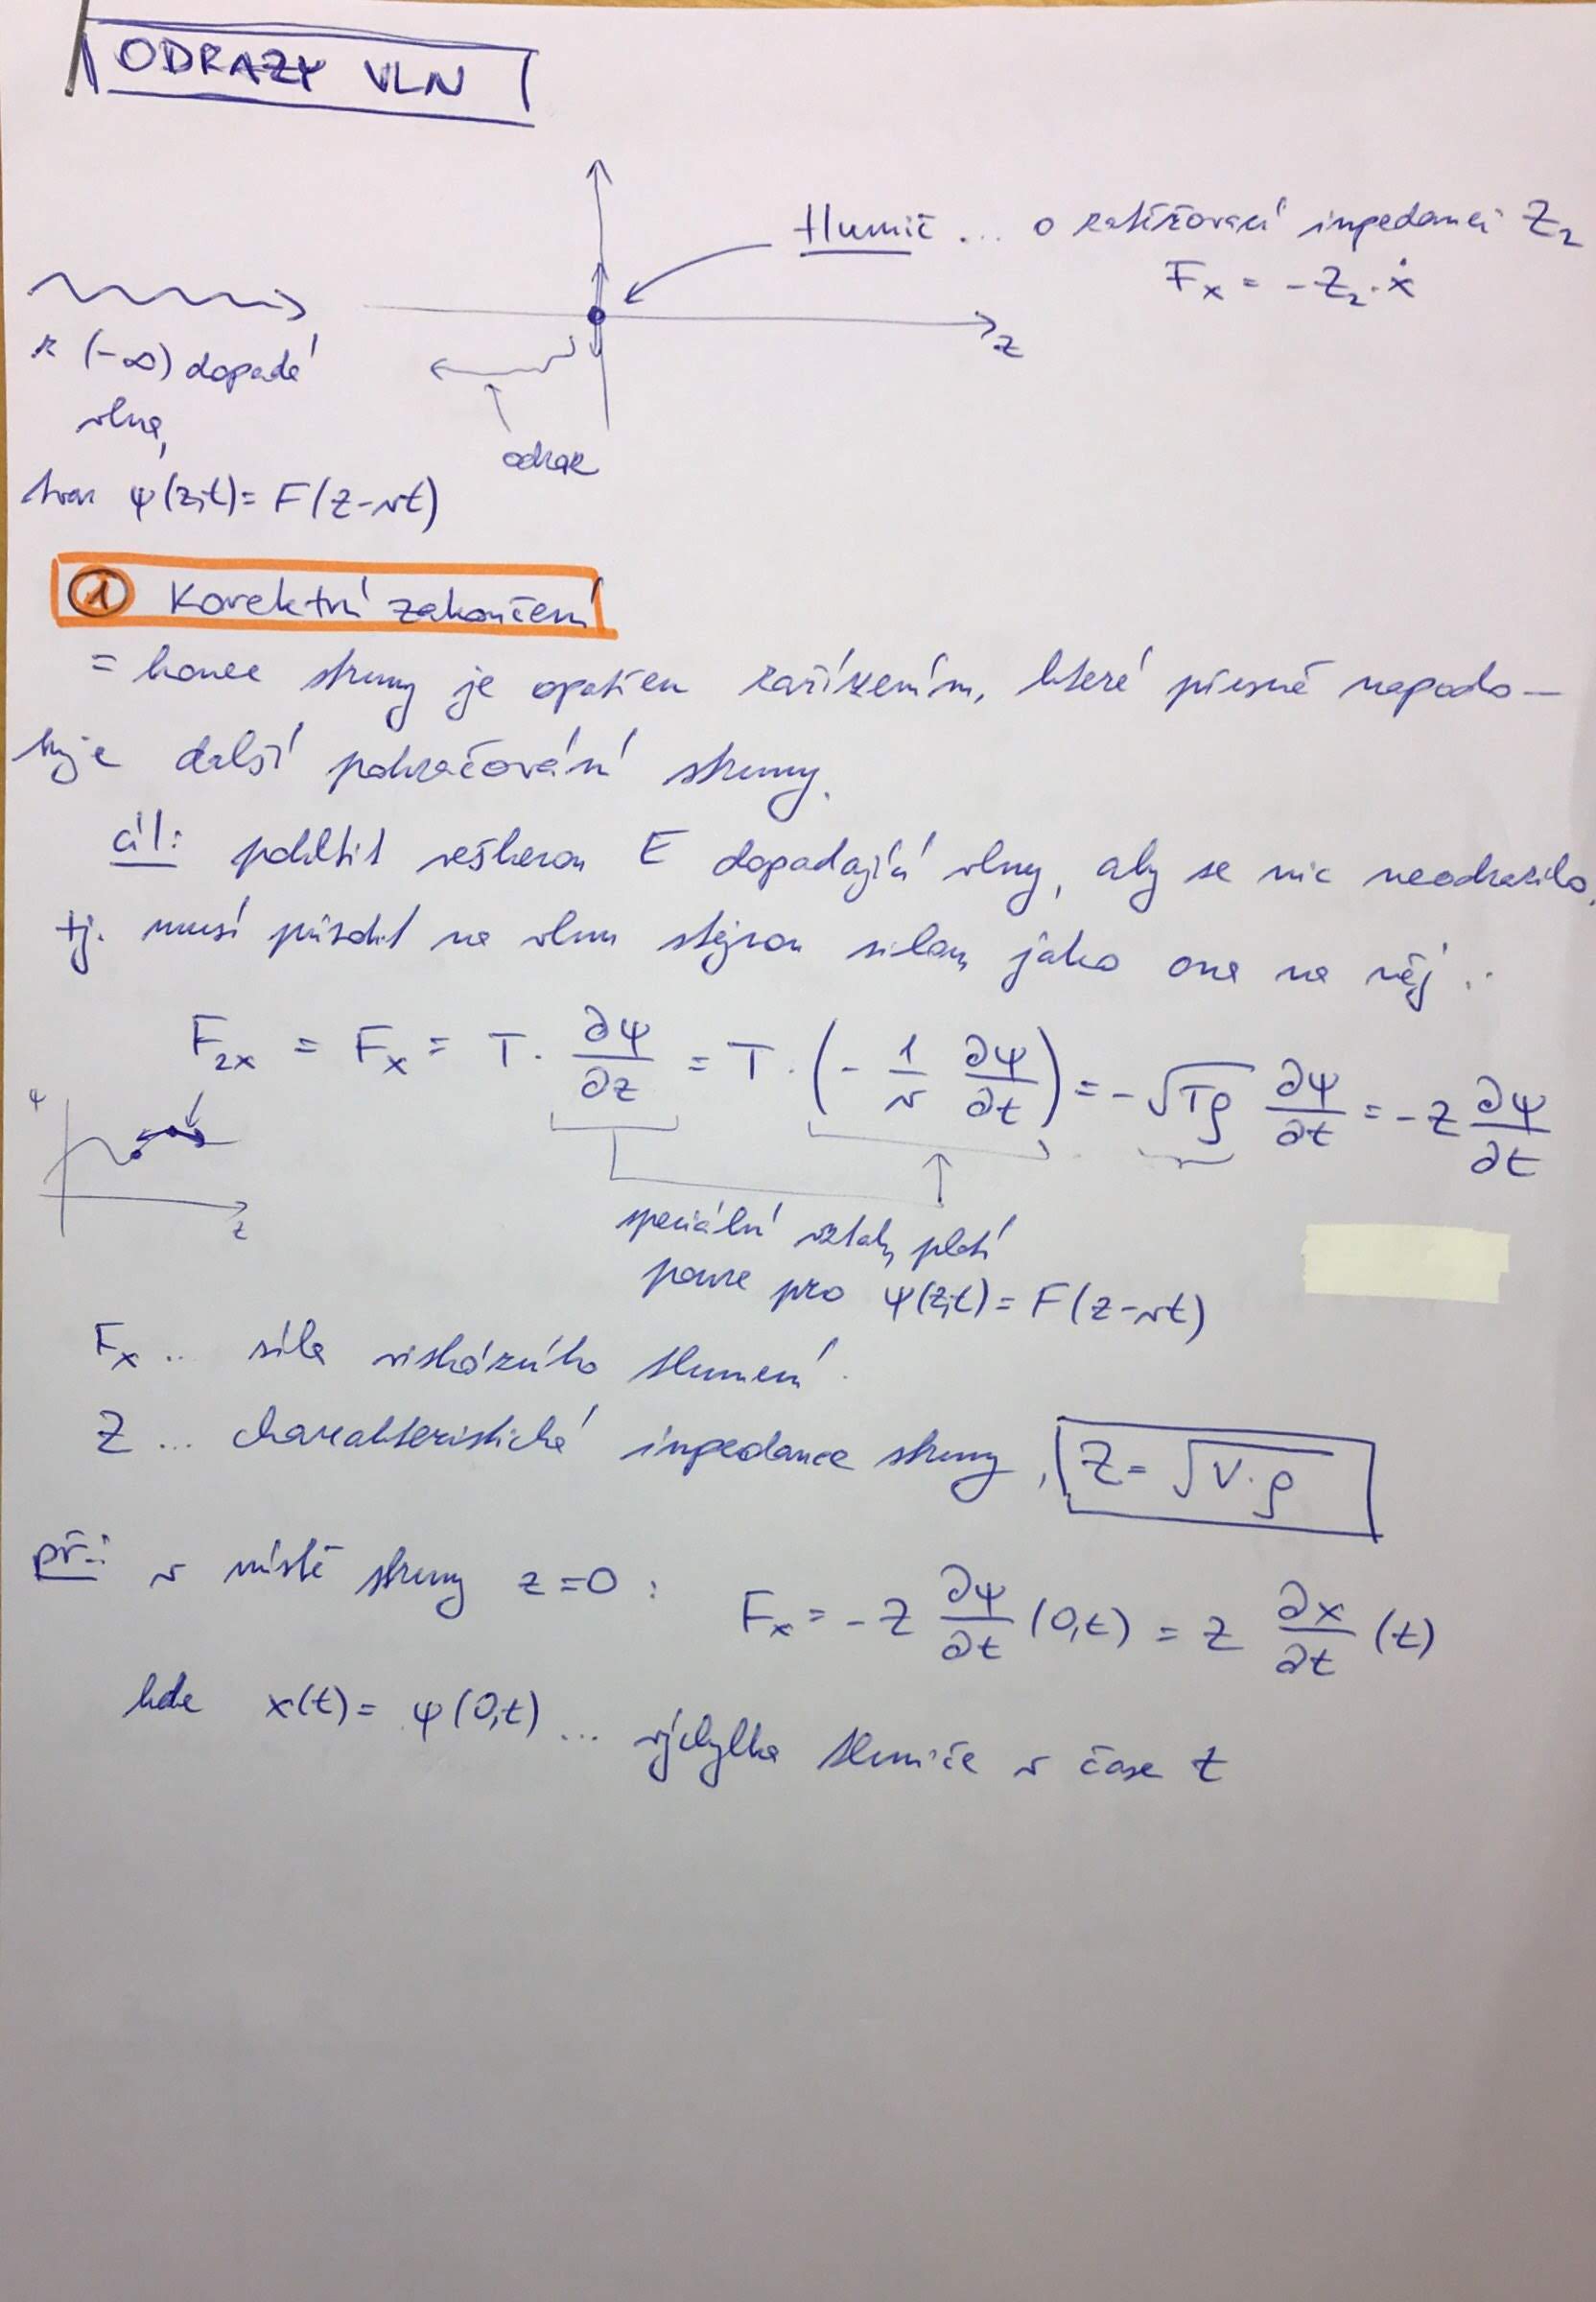 ODRAZY VLN
tlumič ... o zatěžovací impedanci Z₂
Fₓ = -Z₂·ẋ
z
z (-∞) dopadá
vlna,
odraz
tvar ψ(z,t) = F(z-vt)
① Korektní zakončení
= konec struny je opatřen zařízením, které přesně napodo-
buje další pokračování struny.
cíl: pohltit veškerou E dopadající vlny, aby se nic neodrazilo,
tj. musí působit na vlnu stejnou silou jako ona na něj ..
F₂ₓ = Fₓ = T · ∂ψ/∂z = T · (- 1/v ∂ψ/∂t) = - √(Tρ) ∂ψ/∂t = -Z ∂ψ/∂t
ψ
z
speciální vztah, platí
pouze pro ψ(z,t) = F(z-vt)
Fₓ .. síla viskózního tlumení.
Z ... charakteristická impedance struny, Z = √(V·ρ)
př.: v místě struny z=0 : Fₓ = -Z ∂ψ/∂t (0,t) = Z ∂x/∂t (t)
kde x(t) = ψ(0,t) ... výchylka tlumiče v čase t